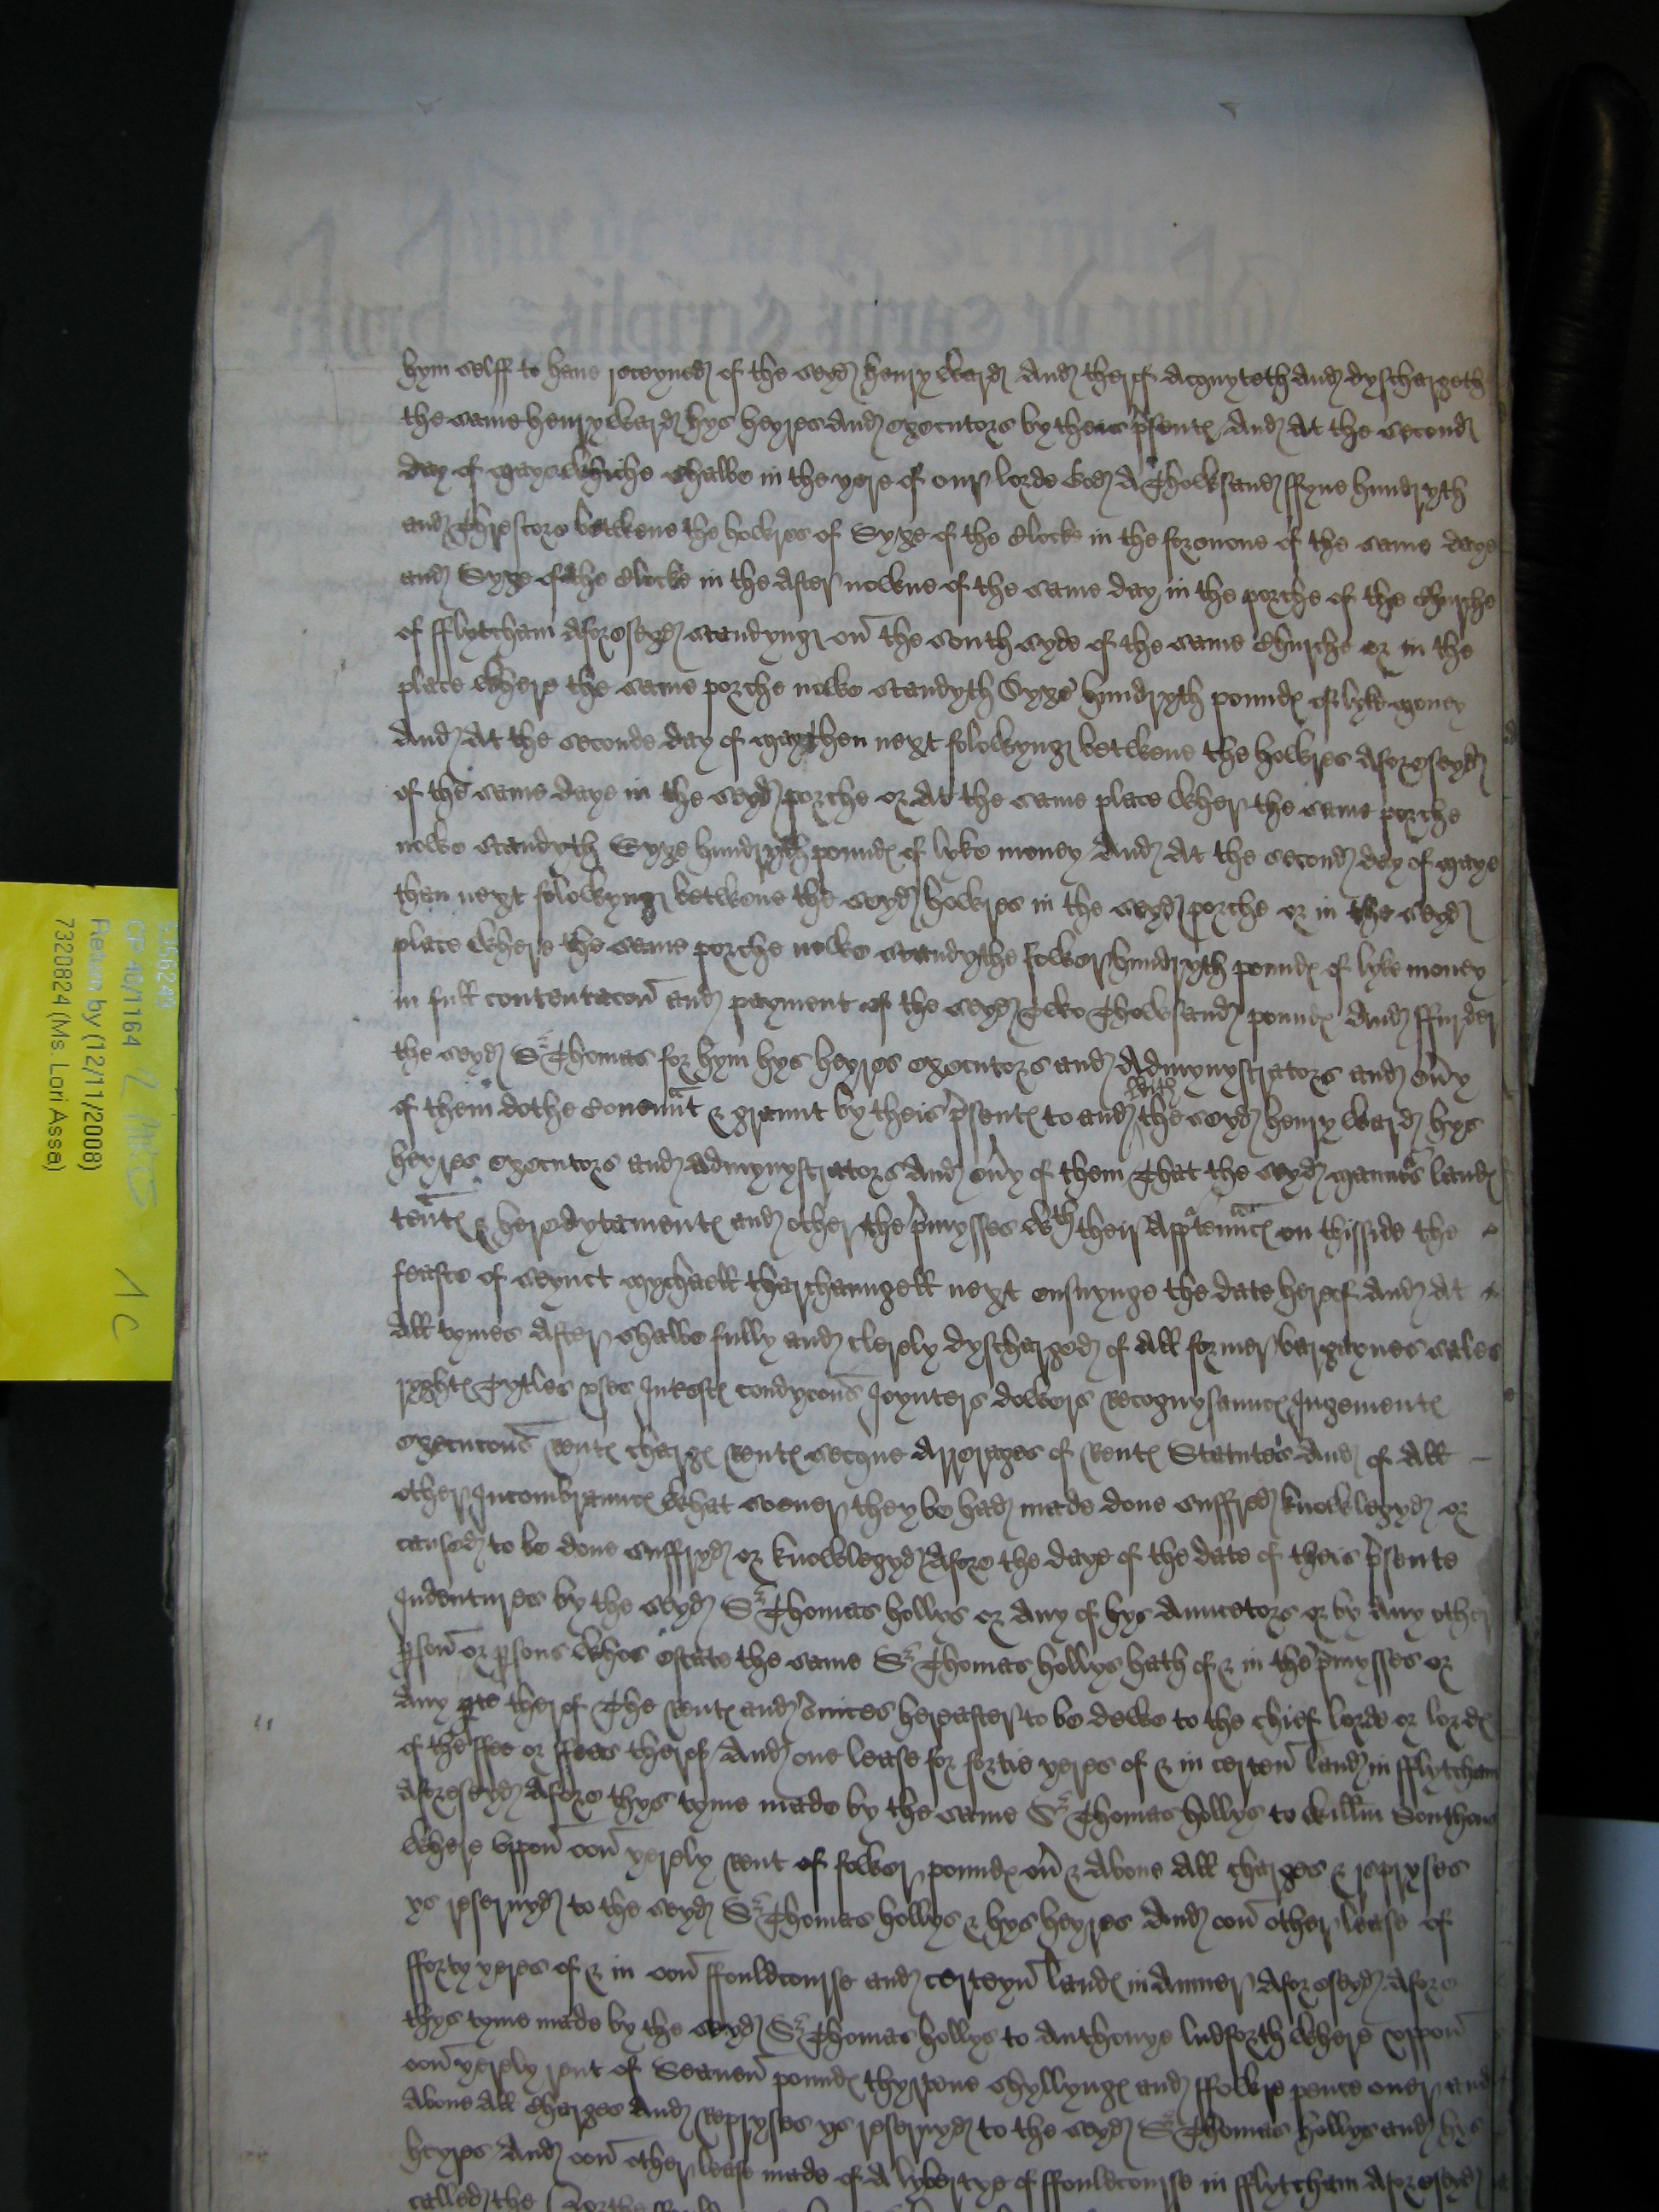 hym selff to have receyved of the seyd henry Ward And therof Acquyteth And dyschargeth
the same henry Ward hys heyres And executors by theis p̄sentꝭ And At the second
day of Maye whiche shalbe in the yere of our lorde God A Thowsand ffyve hundryth
and Threscore betwene the howres of Syxe of the clocke in the forenone of the same daye
and Syxe of the clocke in the After nowne of the same day in the porche of the churche
of fflytcham Aforeseyd standyng on the south syde of the same churche or in the
place where the same porche nowe standyth Syxe hundryth poundꝭ of lyke money
And At the seconde day of May then next folowyng betwene the howres Aforeseyd
of the same daye in the seyd porche or At the same place wher the same porche
nowe standyth Syxe hundryth poundꝭ of lyke money And At the second dey of Maye
then next folowyng betwene the seyd howres in the seyd porche or in the seyd
place where the same porche nowe standythe fower hundryth poundꝭ of lyke money
in full contentacōn and payment of the seyd Two Thowsand poundꝭ And ffurder
the seyd Sr Thomas for hym hys heyres executors and Admynystrators and ev̄y
of them dothe covennt & graunt by theis p̄sentꝭ to and with the seyd henry Ward hys
heyres executors and admynystrators And ev̄y of them That the seyd Mannors landꝭ
tentꝭ & heredytamentꝭ and other the p̄mysses wth their Apptenncꝭ on thisside the
feaste of Seynct Mychaell tharchaungell next ensuynge the date hereof And At
All tymes After shalbe fully and clerely dyscharged of All former bargaynes sales
ryghtꝭ Tytles vses Intrestꝭ condycōns Joynters dowers recognysauncꝭ Jugementꝭ
execucōns rentꝭ chargꝭ rentꝭ secque Arrerages of rentꝭ Statutes And of All
other Incombrauncꝭ what soever they be had made done suffred knowlegyd or
caused to be done suffryd or knowlegyd Afore the daye of the date of theis p̄sente
Indentures by the seyd Sr Thomas hollys or Any of hys Auncetors or by Any other
p̱son or p̱sons whos estate the same Sr Thomas hollys hath of & in the p̄mysses or
Any p̱te therof The rentꝭ and s̄vices hereafter to be dewe to the chief lorde or lordꝭ
of the ffee or ffees therof And one lease for fortie yeres of & in certen land in fflytcham
Aforeseyd Afore thys tyme made by the same Sr Thomas hollys to Willm Southous
where vppon oon yerely rent of fower poundꝭ ov̄ & Above All charges & repryses
ys reservyd to the seyd Sr Thomas hollys & hys heyres And oon other lease of
fforty yeres of & in oon ffouldcourse and certeyn landꝭ in Anmer Aforeseyd Afore
thys tyme made by the seyd Sr Thomas hollys to Anthonye ludforth where vppon
oon yerely rent of Seaven poundꝭ thyrtene shyllyngꝭ and ffowre pence over and
Above All charges And repryses ys reservyd to the seyd Sr Thomas hollys and hys
heyres And oon other lease made of A lybertye of ffouldcourse in fflytcham Aforeseyd
called the
CP 40/1164
Return by (12/1/2008)
7320824 (Ms. Lori Asse)
1 C